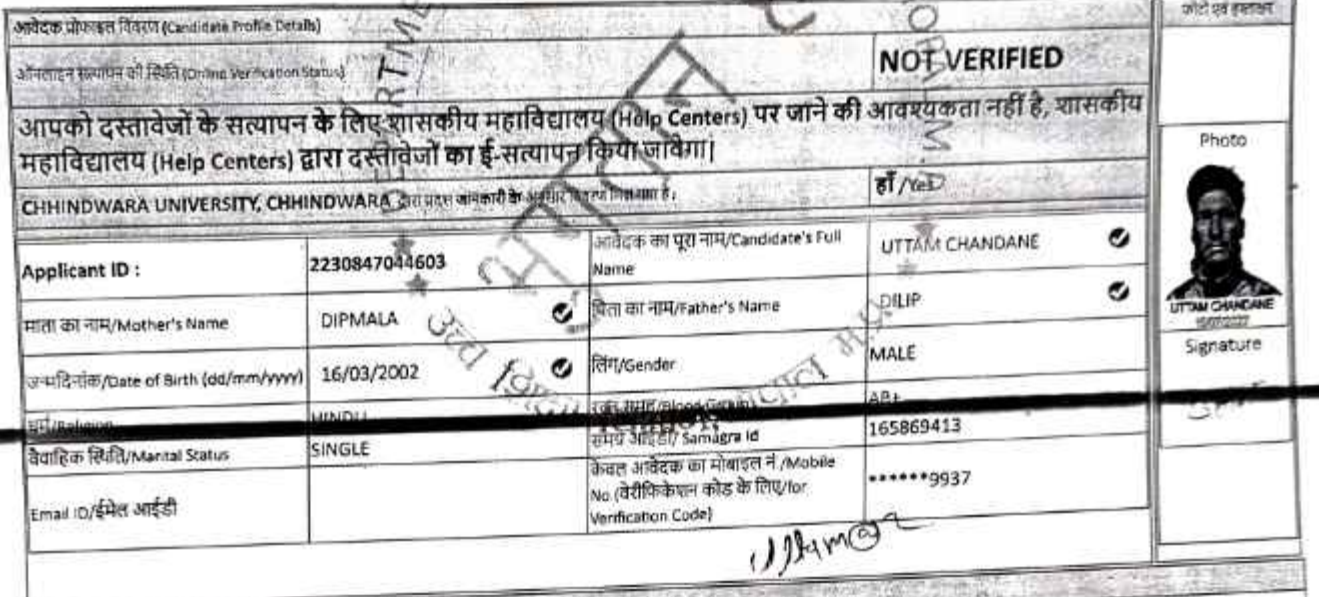 आवेदक प्रोफाइल विवरण (Candidate Profile Details)
फोटो एवं हस्ताक्षर
ऑनलाइन सत्यापन की स्थिति (Online Verification Status)
NOT VERIFIED
आपको दस्तावेजों के सत्यापन के लिए शासकीय महाविद्यालय (Help Centers) पर जाने की आवश्यकता नहीं है, शासकीय
महाविद्यालय (Help Centers) द्वारा दस्तावेजों का ई-सत्यापन किया जावेगा|
CHHINDWARA UNIVERSITY, CHHINDWARA द्वारा प्रदत्त जानकारी के अनुसार
हाँ /Yes
Applicant ID : 2230847044603
आवेदक का पूरा नाम/Candidate's Full Name UTTAM CHANDANE
माता का नाम/Mother's Name DIPMALA
पिता का नाम/Father's Name DILIP
जन्मदिनांक/Date of Birth (dd/mm/yyyy) 16/03/2002
लिंग/Gender MALE
धर्म/Religion HINDU
रक्त समूह/Blood Group AB+
वैवाहिक स्थिति/Marital Status SINGLE
समग्र आईडी/ Samagra Id 165869413
Email ID/ईमेल आईडी
केवल आवेदक का मोबाइल नं./Mobile
No.(वेरीफिकेशन कोड के लिए/for
Verification Code)
******9937
Photo
UTTAM CHANDANE
Signature